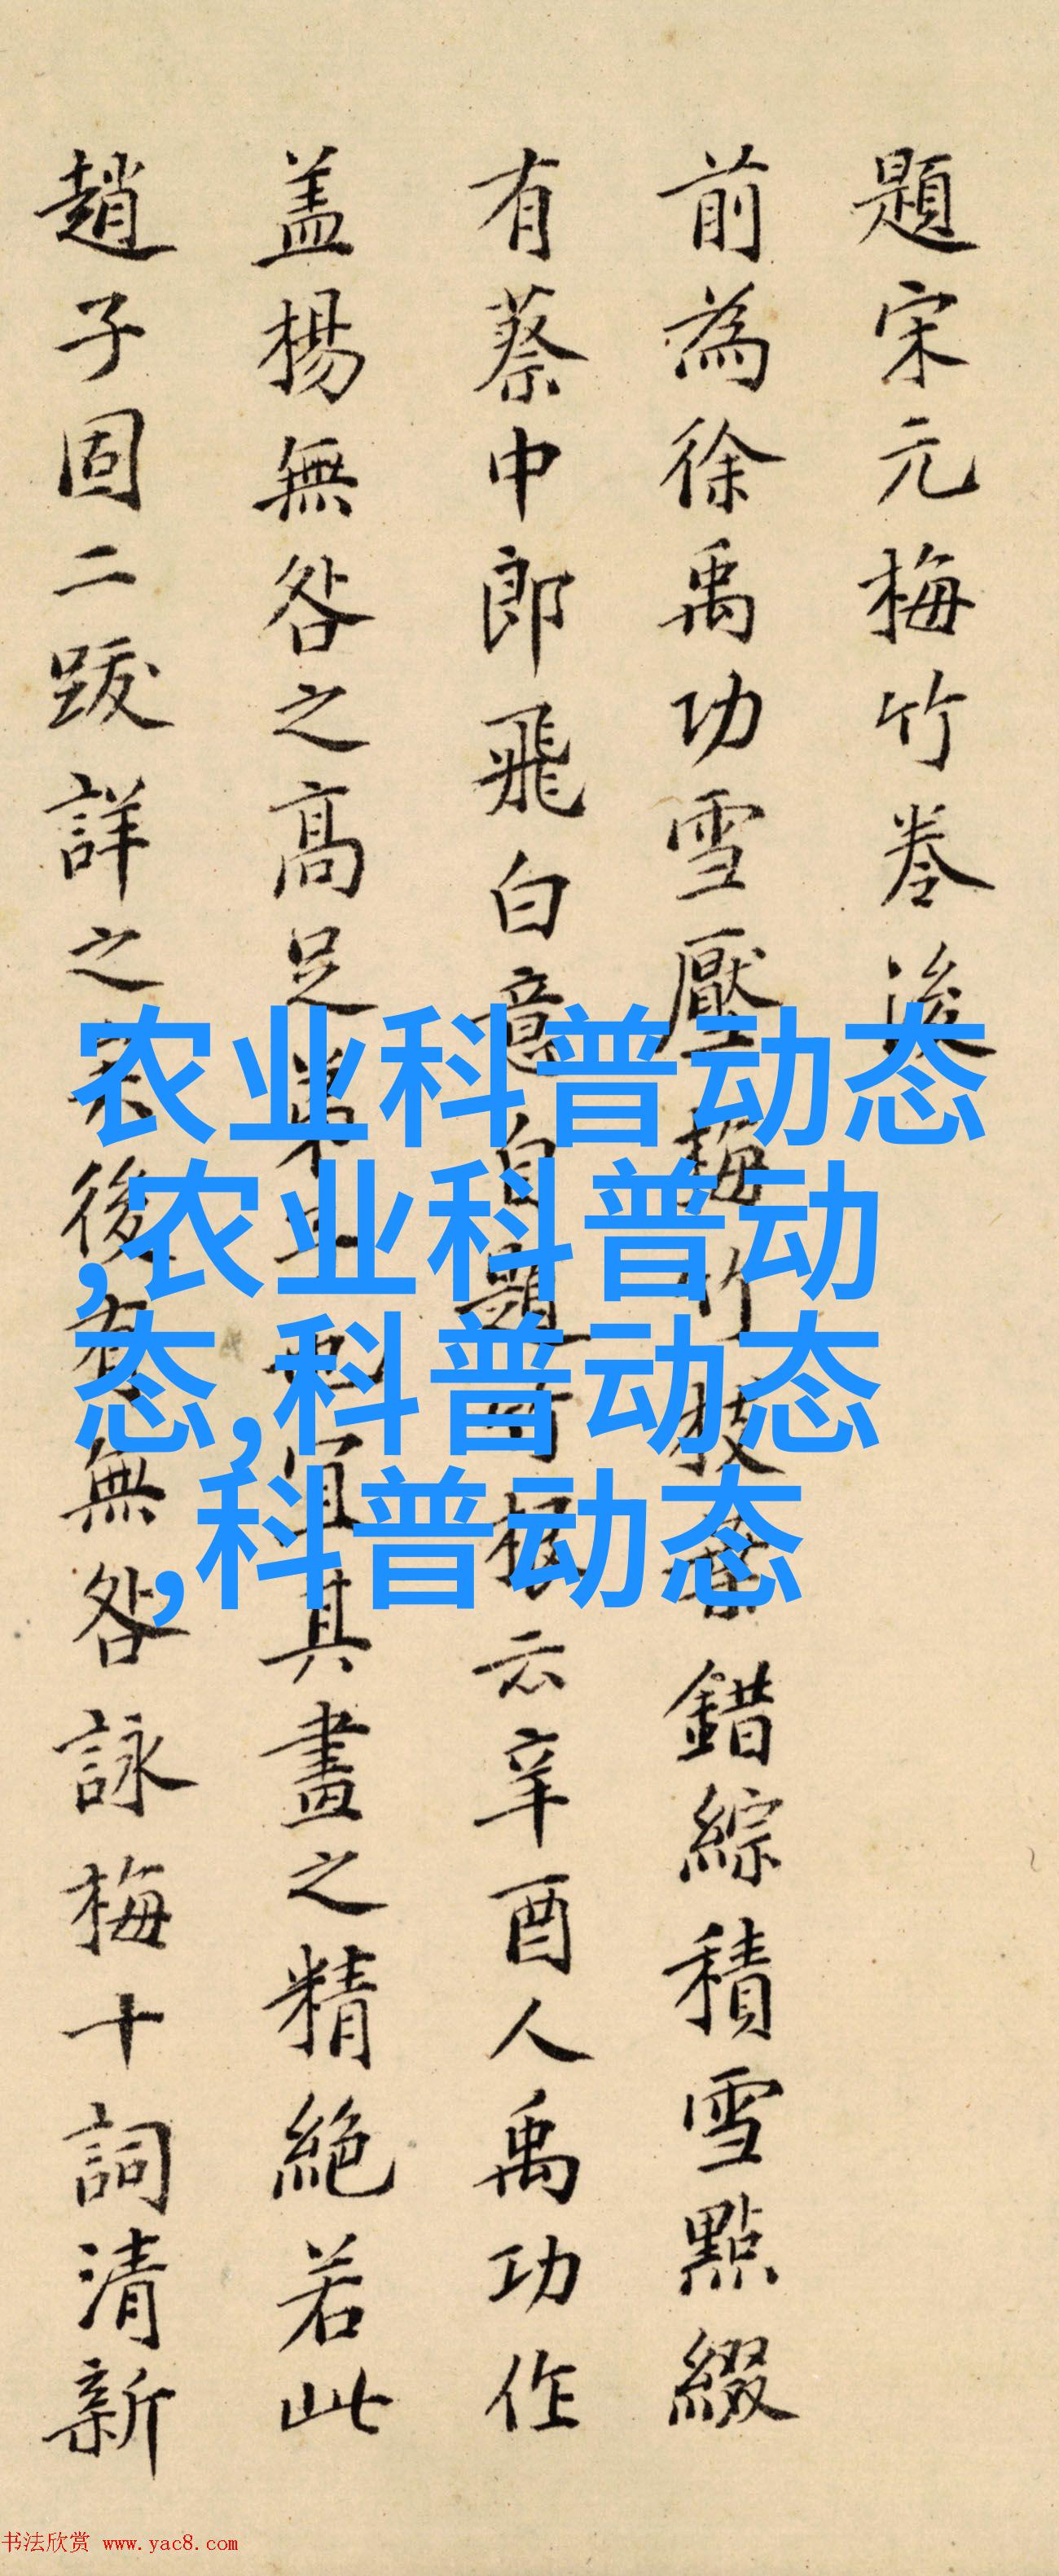 題宋元梅竹卷後
前為徐禹功雪壓梅竹枝葉錯綜積雪點綴
有蔡中郎飛白意自題于根云辛酉人禹功作
盖楊無咎之高足弟也宜其畫之精絕若此
趙子固二跋詳之後有無咎詠梅十詞清新
农业科普动态
,农业科普动
态,科普动态
,科普动态
书法欣赏 www.yac8.com